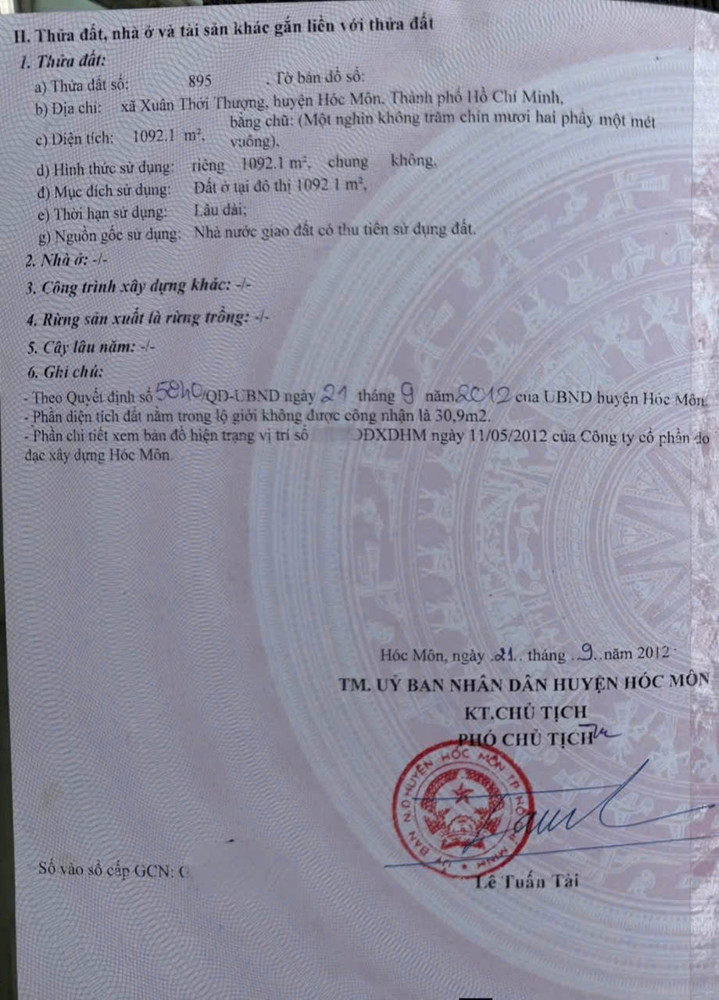 II. Thửa đất, nhà ở và tài sản khác gắn liền với thửa đất
1. Thửa đất:
a) Thửa đất số: 895 . Tờ bản đồ số:
b) Địa chỉ: xã Xuân Thới Thượng, huyện Hóc Môn, Thành phố Hồ Chí Minh,
c) Diện tích: 1092.1 m², bằng chữ: (Một nghìn không trăm chín mươi hai phẩy một mét
vuông),
d) Hình thức sử dụng: riêng 1092.1 m², chung không,
đ) Mục đích sử dụng: Đất ở tại đô thị 1092.1 m²,
e) Thời hạn sử dụng: Lâu dài;
g) Nguồn gốc sử dụng: Nhà nước giao đất có thu tiền sử dụng đất.
2. Nhà ở: -/-
3. Công trình xây dựng khác: -/-
4. Rừng sản xuất là rừng trồng: -/-
5. Cây lâu năm: -/-
6. Ghi chú:
- Theo Quyết định số 5840/QD-UBND ngày 21 tháng 9 năm 2012 của UBND huyện Hóc Môn.
- Phần diện tích đất nằm trong lộ giới không được công nhận là 30,9m2.
- Phần chi tiết xem bản đồ hiện trạng vị trí số ĐDXDHM ngày 11/05/2012 của Công ty cổ phần đo
đạc xây dựng Hóc Môn.
Hóc Môn, ngày .21.. tháng ..9.. năm 2012
TM. UỶ BAN NHÂN DÂN HUYỆN HÓC MÔN
KT.CHỦ TỊCH
PHÓ CHỦ TỊCH
ỦY BAN N.D HUYỆN HÓC MÔN T.P HỒ CHÍ MINH
Lê Tuấn Tài
Số vào sổ cấp GCN: C